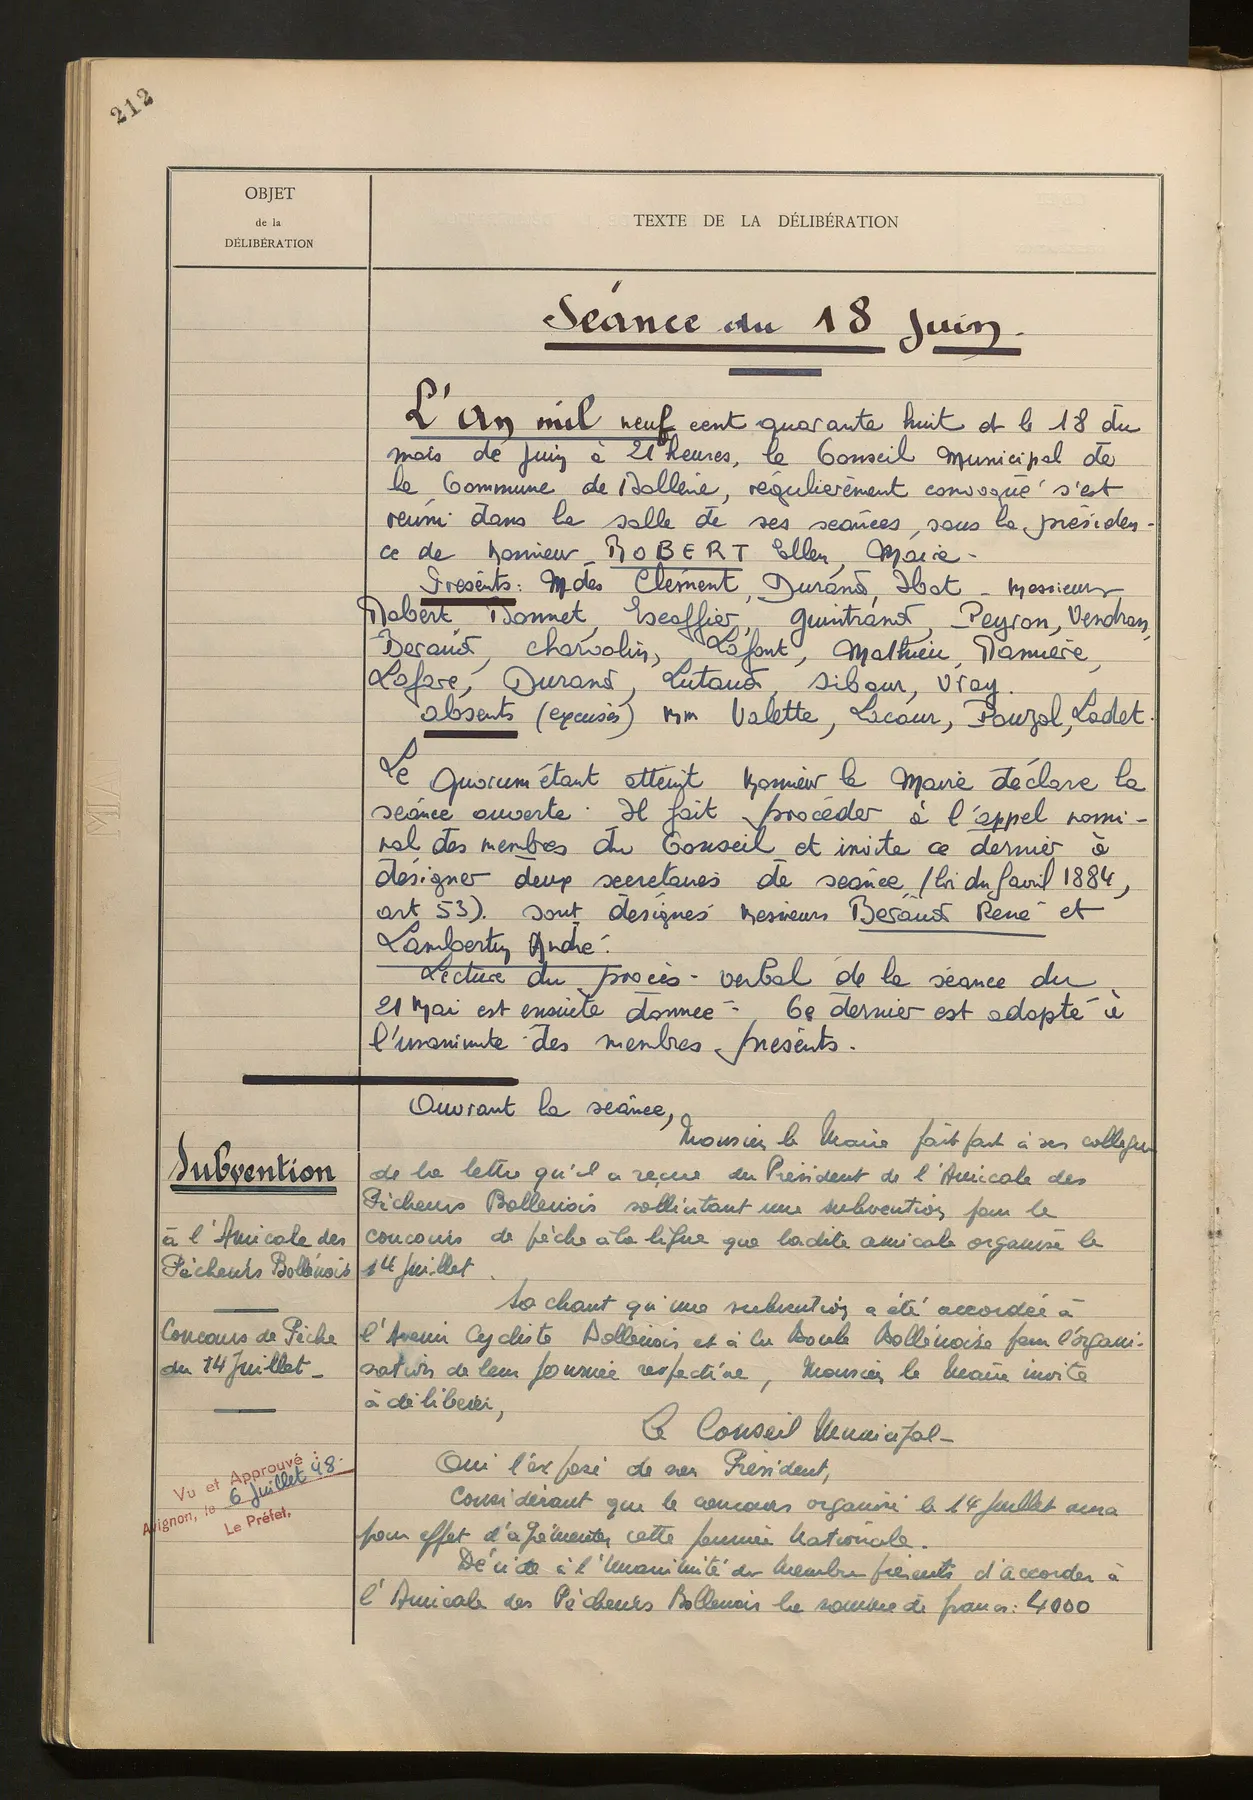 212
OBJET
de la
DÉLIBÉRATION
TEXTE DE LA DÉLIBÉRATION
Séance du 18 Juin.
L'An mil neuf cent quarante huit et le 18 du
mois de Juin à 21 heures, le Conseil Municipal de
la Commune de Bollène, régulièrement convoqué s'est
réuni dans la salle de ses séances, sous la présiden-
ce de Monsieur ROBERT Ellen, Maire-
Présents: Mdes Clément, Durand, Ibat - Messieurs
Robert Bonnet, Escoffier, Guintrand, Peyron, Vendran,
Beraud, Charvolin, Lafont, Mathieu, Mathieu, Bannière,
Lafare, Durand, Lutaud, Sibour, Vray.
absents (excusés) MM Valette, Lacour, Pouzol, Ladet.
Le Quorum étant atteint Monsieur le Maire déclare la
séance ouverte. Il fait procéder à l'appel nomi-
nal des membres du Conseil et invite ce dernier à
désigner deux secrétaires de séance (loi du 5 avril 1884,
art 53). sont désignés Messieurs Béraud René et
Lambertin André.
Lecture du procès-verbal de la séance du
21 Mai est ensuite donnée - Ce dernier est adopté à
l'unanimité des membres présents.
Ouvrant la séance,
Monsieur le Maire fait part à ses collègues
Subvention
à l'Amicale des
Pêcheurs Bollénois
Concours de Pêche
du 14 Juillet -
Vu et Approuvé :
Avignon, le 6 Juillet 48.
Le Préfet,
de la lettre qu'il a reçue du Président de l'Amicale des
Pêcheurs Bollenois sollicitant une subvention pour le
concours de pêche à la ligne que ladite amicale organise le
14 Juillet.
Sachant qu'une subvention a été accordée à
l'Avenir Cycliste Bollenois et à la Boule Bollénoise pour l'organi-
sation de leur journée respective, Monsieur le Maire invite
à délibérer,
Le Conseil Municipal -
Oui l'exposé de son Président,
Considérant que le concours organisé le 14 Juillet aura
pour effet d'agrémenter cette journée Nationale.
Décide à l'Unanimité des Membres présents d'accorder à
l'Amicale des Pêcheurs Bollenois la somme de francs: 4000